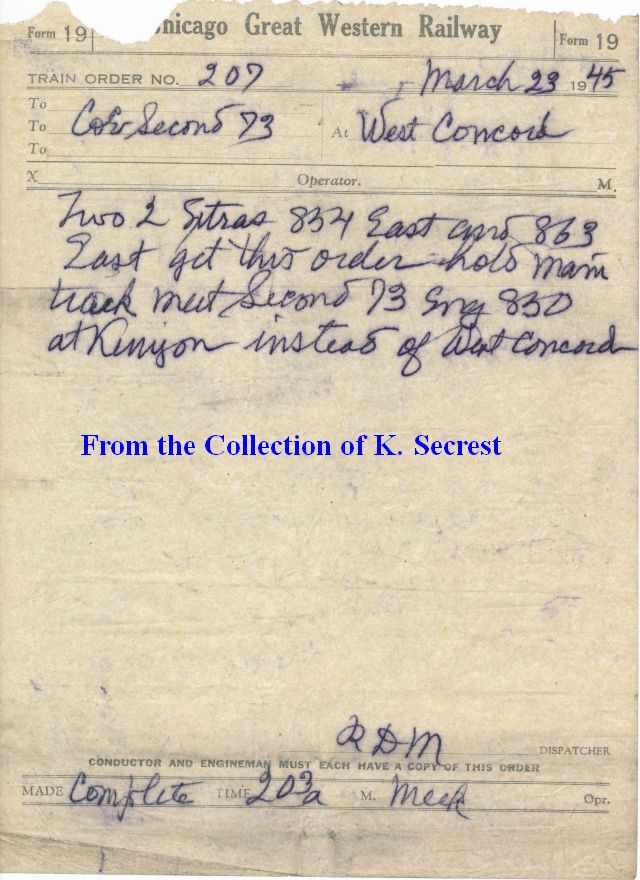 Form 19 Chicago Great Western Railway Form 19
TRAIN ORDER NO. 207 March 23 1945
To
To C&E Second 73 At West Concord
To
X Operator. M.
Two 2 Extras 834 East and 863
East get this order hold main
track meet Second 73 Eng 830
at Kenyon instead of West Concord
From the Collection of K. Secrest
RDM DISPATCHER
CONDUCTOR AND ENGINEMAN MUST EACH HAVE A COPY OF THIS ORDER
MADE Complete TIME 203a M. Meek Opr.